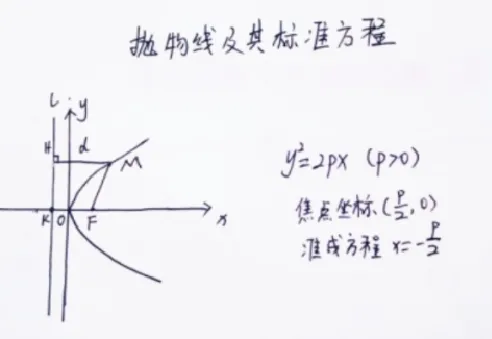 抛物线及其标准方程
L y
H d M
K O F x
y²=2px (p>0)
焦点坐标(p/2,0)
准成方程 x=-p/2